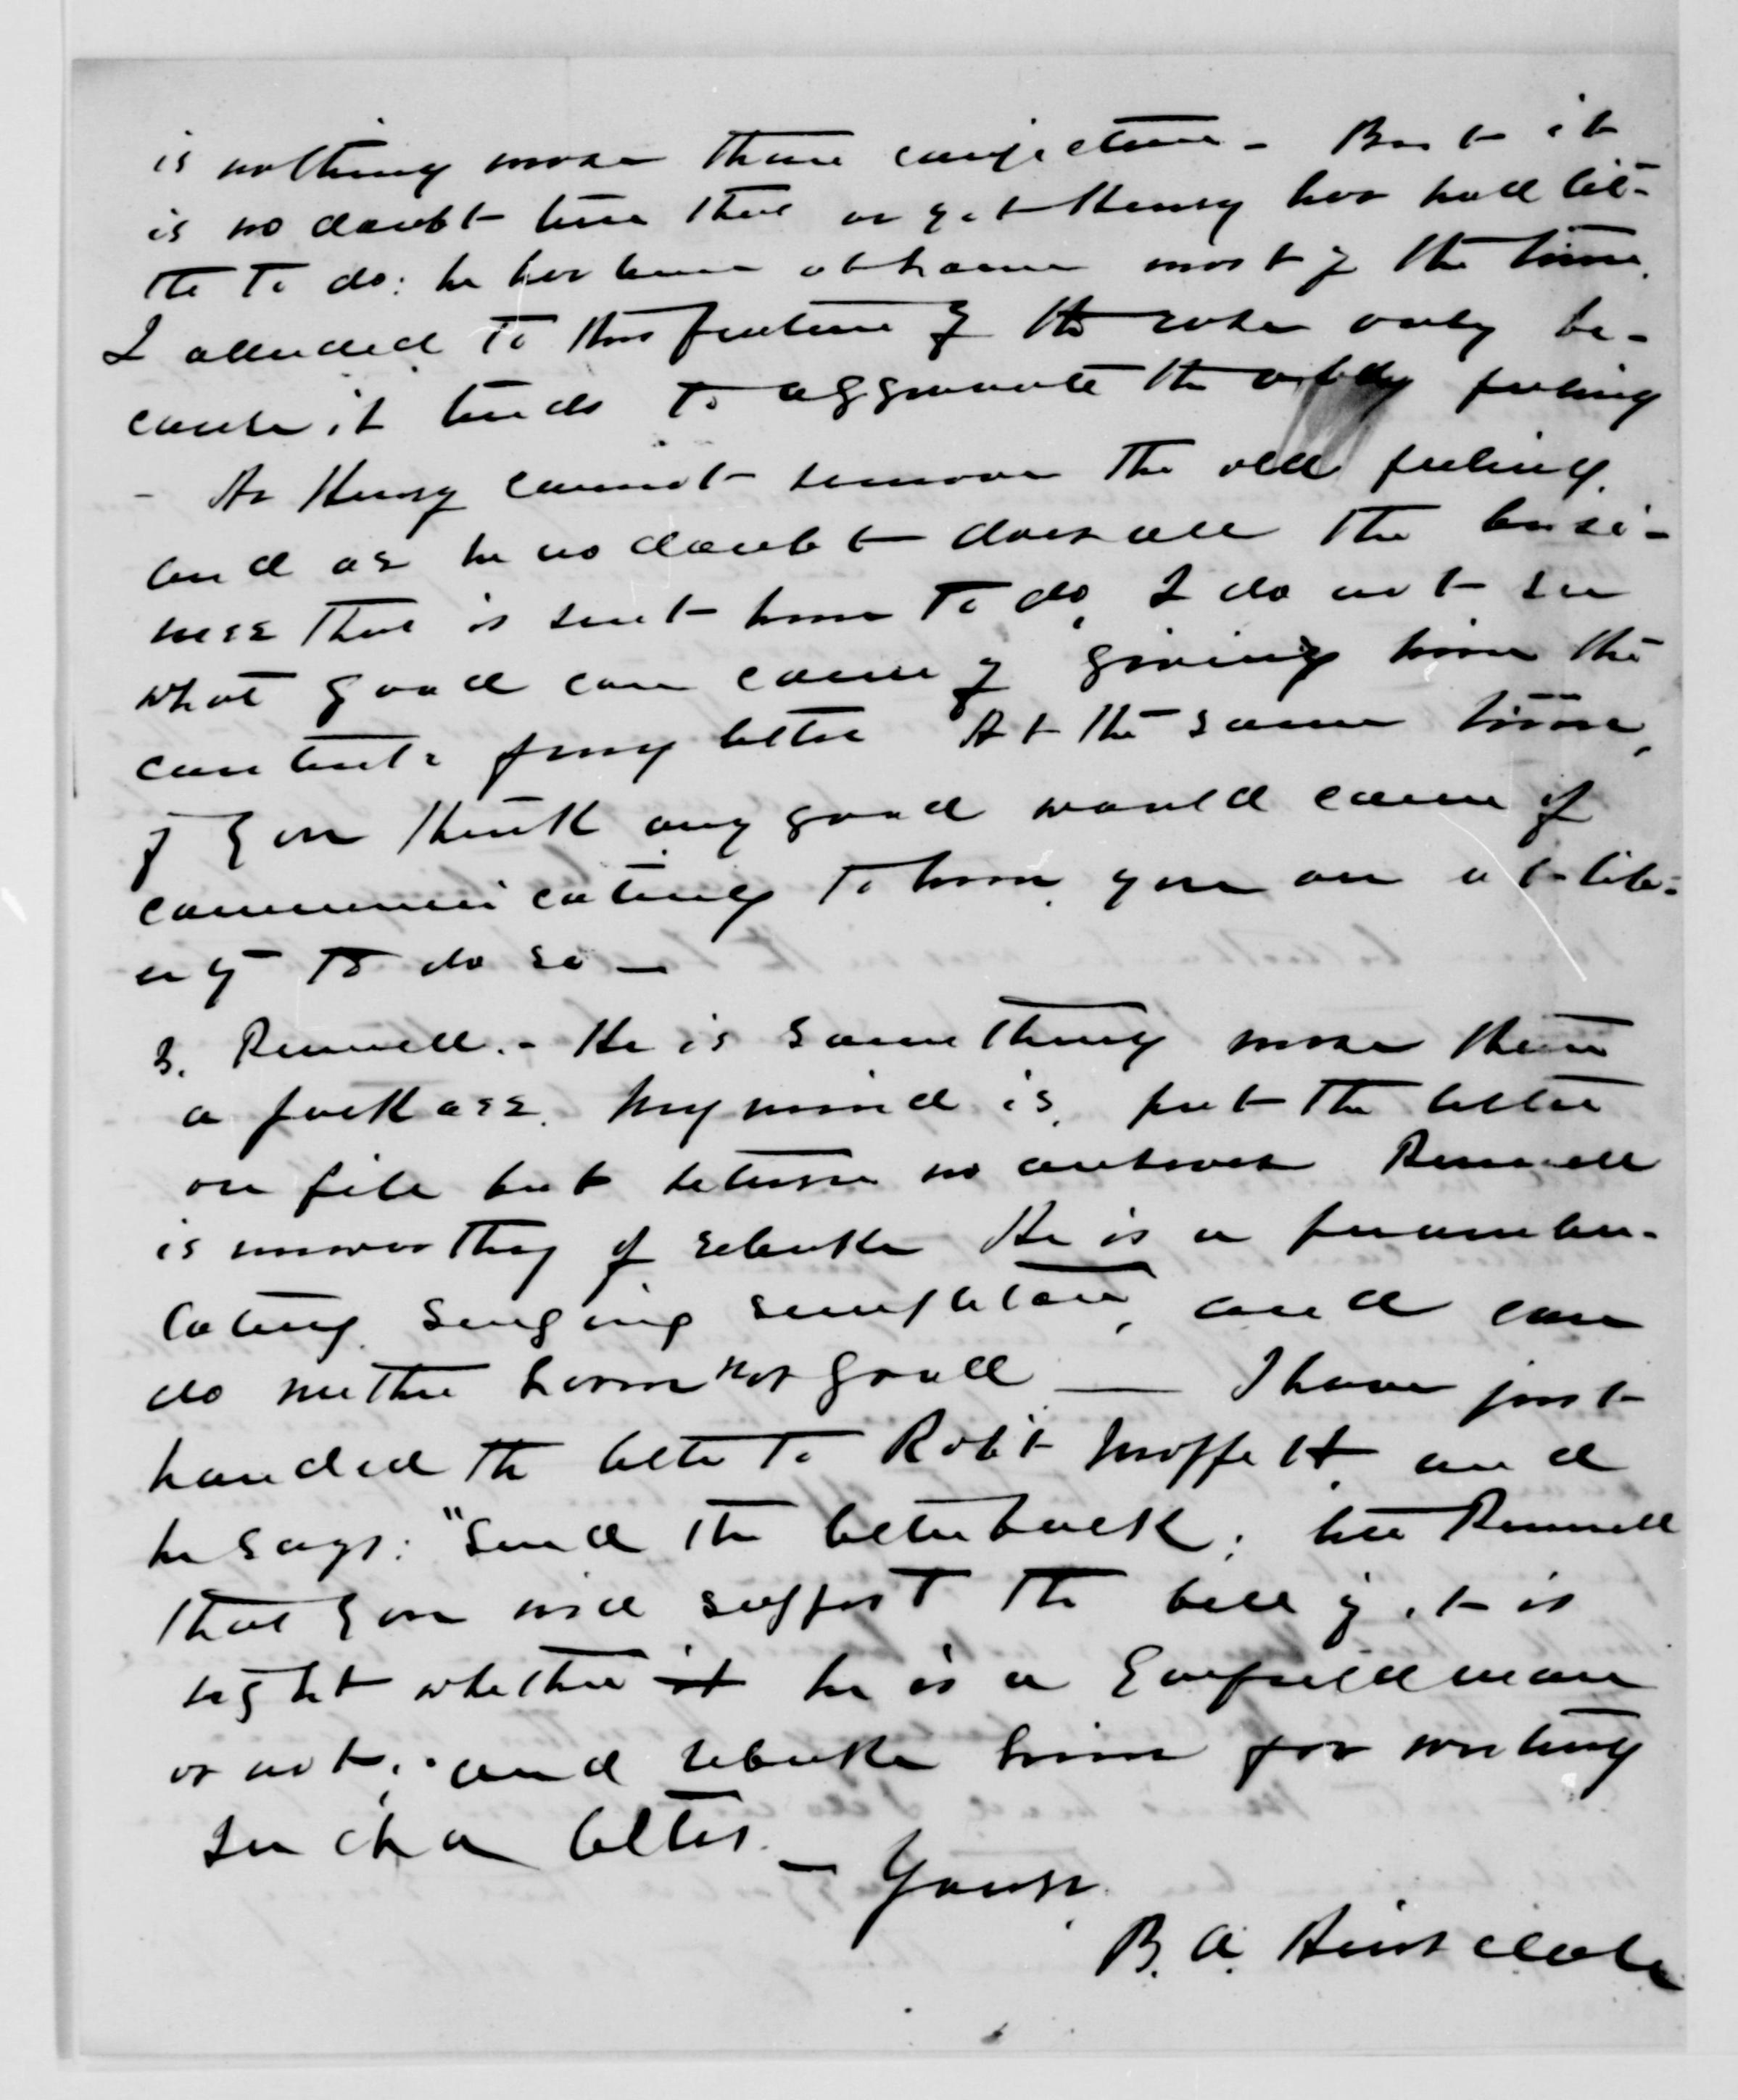 is nothing more than conjecture - But it
is no doubt true that as yet Henry has had lit-
tle to do: he has been at home most of the time.
I alluded to this feature of the case only be-
cause it tends to aggravate the old feeling
- As Henry cannot remove the old feeling,
and as he no doubt does all the busi-
ness that is sent him to do, I do not see
what good can come of giving him the
contents of my letter At the same time,
if you think any good would come of
communicating to him, you are at lib-
erty to do so -
3. Rummell. - He is something more than
a jackass. My mind is, put the letter
on file but return no answer Rummell
is unworthy of rebuke He is a perambu-
lating, singing simpleton, and can
do neither harm nor good — I have just
handed the letter to Rob't Moffett, and
he says: "Send the letter back; tell Rummell
that you will support the bill if it is
right whether it he is a Garfield man
or not; and rebuke him for writing
such a letter. -
Yours,
B. A. Hinsdale